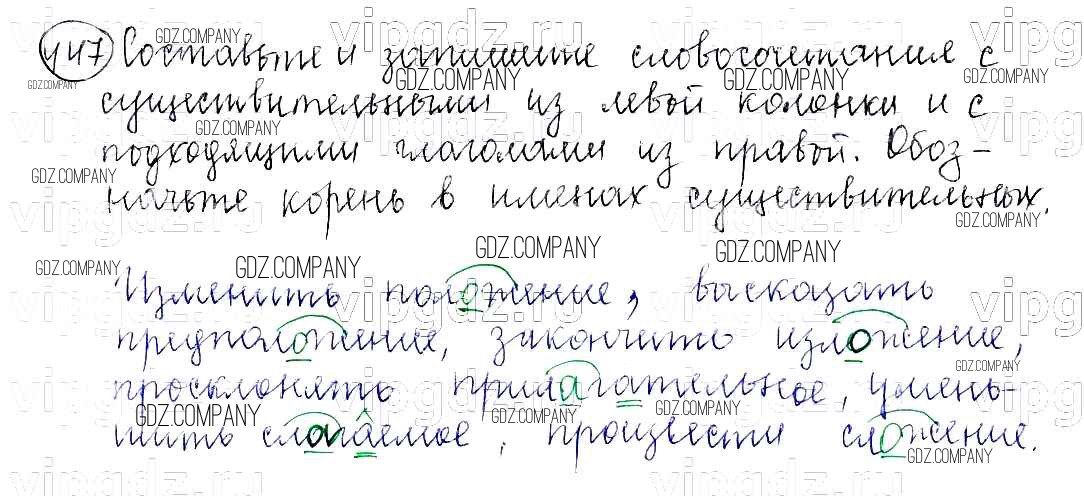 447 Составьте и запишите словосочетания с
существительными из левой колонки и с
подходящими глаголами из правой. Обоз-
начьте корень в именах существительных.
Изменить положение, высказать
предположение, закончить изложение,
просклонять прилагательное, умень-
шить слагаемое, произвести сложение.
GDZ.COMPANY
vipgdz.ru